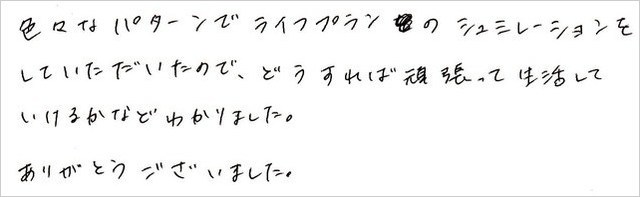 色々なパターンでライフプランのシュミレーションを
していただいたので、どうすれば頑張って生活して
いけるかなどわかりました。
ありがとうございました。